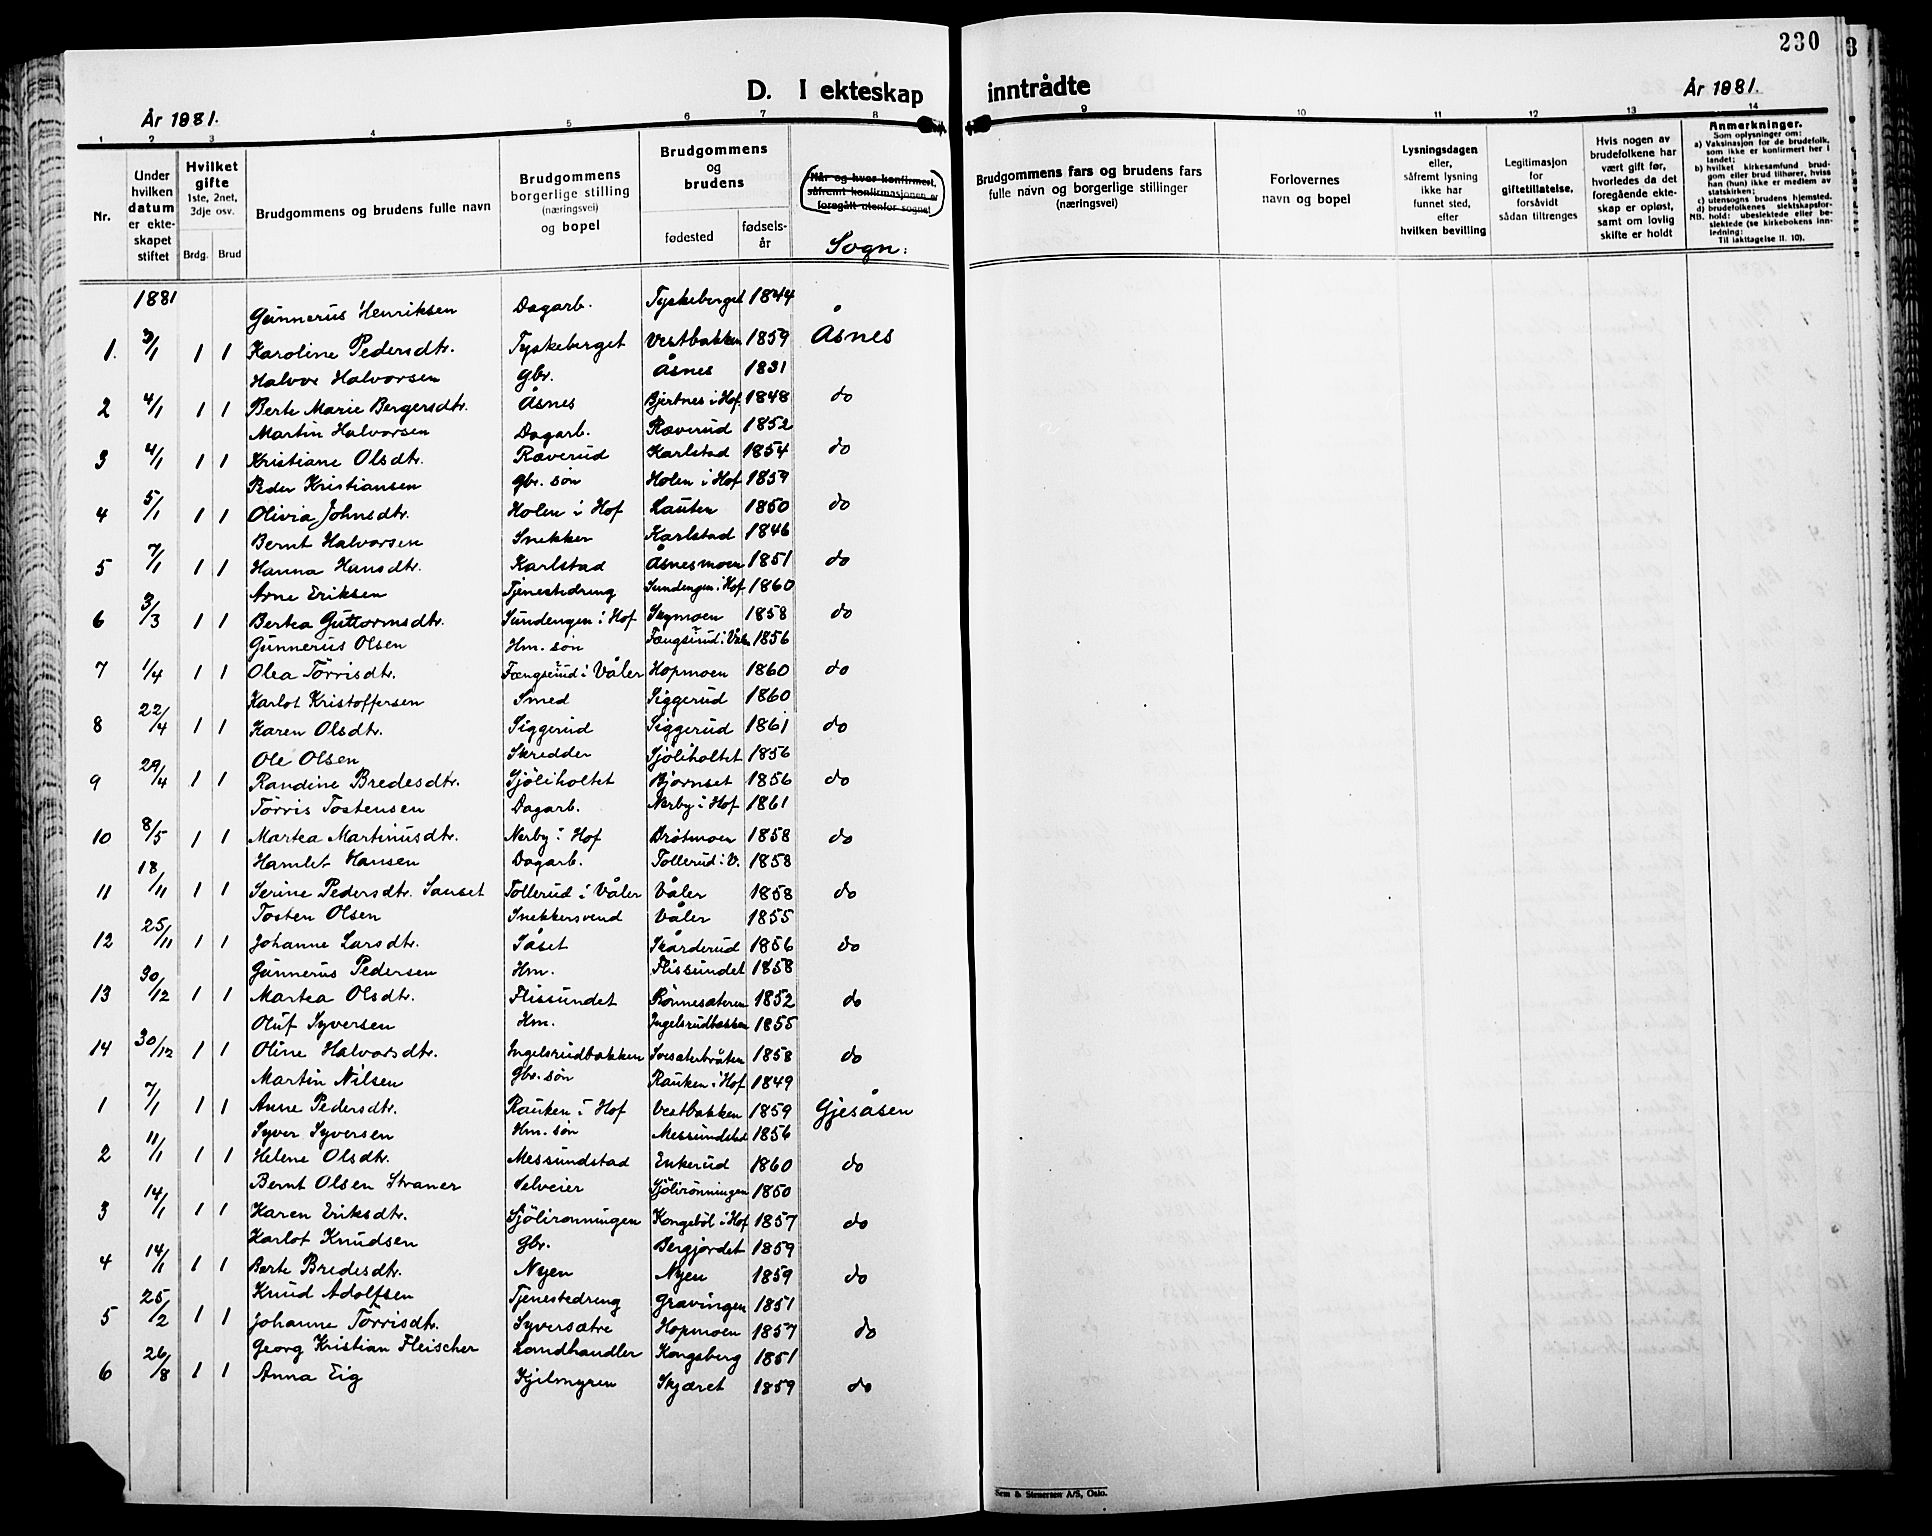 230
D. I ekteskap inntrådte
År 1881.
År 1881.
1 2 3 4 5 6 7 8 9 10 11 12 13 14
Nr.
Under hvilken datum er ekte-skapet stiftet
Hvilket gifte 1ste, 2net, 3dje osv.
Brdg. Brud
Brudgommens og brudens fulle navn
Brudgommens borgerlige stilling (næringsvei) og bopel
Brudgommens og brudens
fødested
fødsels-år
Når og hvor konfirmert, såfremt konfirmasjonen er foregått utenfor sognet
Sogn:
Brudgommens fars og brudens fars fulle navn og borgerlige stillinger (næringsvei)
Forlovernes navn og bopel
Lysningsdagen eller, såfremt lysning ikke har funnet sted, efter hvilken bevilling
Legitimasjon for giftetillatelse, forsåvidt sådan tiltrenges
Hvis nogen av brudefolkene har vært gift før, hvorledes da det foregående ekte-skap er opløst, samt om lovlig skifte er holdt
Anmerkninger.
Som oplysninger om:
a) Vaksinasjon for de brudefolk, som ikke er konfirmert her i landet;
b) hvilket kirkesamfund brud-gom eller brud tilhører, hvis han (hun) ikke er medlem av statskirken;
c) utensogns brudens hjemsted.
d) brudefolkenes slektskapsfor-hold: ubeslektede eller be-slektede (se kirkebokens inn-ledning;
NB.
Til iakttagelse II. 10).
1881
Gunnerus Henriksen Dagarb. Tyskeberget 1844
1. 3/1 1 1 Karoline Pedersdtr. Tyskeberget Vestbakken 1859 Åsnes
Halvor Halvorsen Gbr. Åsnes 1831
2 4/1 1 1 Berte Marie Bergersdtr. Åsnes Bjertnes i Hof 1848 do
Martin Halvorsen Dagarb. Ræverud 1852
3 4/1 1 1 Kristiane Olsdtr. Ræverud Karlstad 1854 do
Peder Kristiansen Gbr. søn Holen i Hof 1859
4 5/1 1 1 Olivia Johnsdtr. Holen i Hof Lauten 1850 do
Bernt Halvorsen Snekker Karlstad 1846
5 7/1 1 1 Hanna Hansdtr. Karlstad Åsnesmoen 1851 do
Arne Eriksen Tjenestedreng Sundengen i Hof 1860
6 3/3 1 1 Bertea Guttormsdtr. Sundengen i Hof Skymoen 1858 do
Gunnerus Olsen Hm. søn Fængsrud i Vål. 1856
7 1/4 1 1 Olea Törrisdtr. Fængsrud i Våler Hopmoen 1860 do
Karlot Kristoffersen Smed Siggerud 1860
8 22/4 1 1 Karen Olsdtr. Siggerud Siggerud 1861 do
Ole Olsen Skredder Sjöliholtet 1856
9 29/4 1 1 Randine Bredesdtr. Sjöliholtet Bjørnset 1856 do
Törris Tostensen Dagarb. Nerby i Hof 1861
10 8/5 1 1 Martea Martinusdtr. Nerby i Hof Bråtmoen 1858 do
Hamlet Hansen Dagarb. Tollerud i V. 1858
11 18/11 1 1 Serine Pedersdtr. Sanset Tollerud i Våler Våler 1858 do
Tosten Olsen Snekkersvend Våler 1855
12 25/11 1 1 Johanne Larsdtr. Såset Skårderud 1856 do
Gunnerus Pedersen Hm. Flissundet 1858
13 30/12 1 1 Martea Olsdtr. Flissundet Rönnesæteren 1852 do
Oluf Syversen Hm. Ingelsrudbakken 1855
14 30/12 1 1 Oline Halvorsdtr. Ingelsrudbakken Svesæterbråten 1858 do
Martin Nilsen Gbr. søn Rauken i Hof 1849
1 7/1 1 1 Anne Pedersdtr. Rauken i Hof Vestbakken 1859 Gjesåsen
Syver Syversen Hm. søn Messundstad 1856
2 11/1 1 1 Helene Olsdtr. Messundstad Enkerud 1860 do
Bernt Olsen Straner Selveier Sjölirönningen 1850
3 14/1 1 1 Karen Eriksdtr. Sjölirönningen Kongsböl i Hof 1857 do
Karlot Knudsen Gbr. Bergjordet 1859
4 14/1 1 1 Berte Bredesdtr. Nyen Nyen 1859 do
Knud Adolfsen Tjenestedreng Gravingen 1851
5 25/2 1 1 Johanne Törrisdtr. Syversætre Hopmoen 1857 do
Georg Kristian Fleischer Landhandler Kongsberg 1851
6 26/8 1 1 Anna Eig Kjilmyren Skjæret 1859 do
Sem & Stenersen A/S, Oslo.